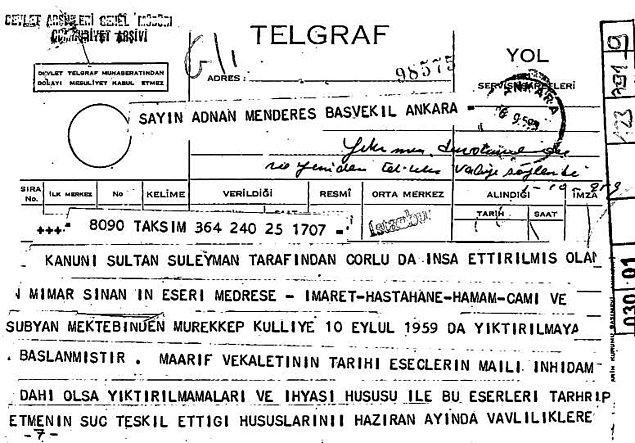 DEVLET ARŞİVLERİ GENEL MÜDÜRLÜĞÜ
CUMHURİYET ARŞİVİ
TELGRAF
YOL
DEVLET TELGRAF MUHABERATINDAN
DOLAYI MESULİYET KABUL ETMEZ
ADRES:
98575
SERVİS İŞARETLERİ
ANKARA
SAYIN ADNAN MENDERES BASVEKIL ANKARA -
SIRA No. İLK MERKEZ No KELİME VERİLDİĞİ RESMİ ORTA MERKEZ ALINDIĞI İMZA
TARİH SAAT
+++- 8090 TAKSIM 364 240 25 1707 -
İstanbul
KANUNI SULTAN SULEYMAN TARAFINDAN CORLU DA INSA ETTIRILMIS OLAN
N MIMAR SINAN IN ESERI MEDRESE - IMARET-HASTAHANE-HAMAM-CAMI VE
SUBYAN MEKTEBINDEN MUREKKEP KULLIYE 10 EYLUL 1959 DA YIKTIRILMAYA
BASLANMISTIR . MAARIF VEKALETININ TARIHI ESECLERIN MAILI INHIDAM
DAHI OLSA YIKTIRILMAMALARI VE IHYASI HUSUSU ILE BU ESERLERI TAHRIP
ETMENIN SUC TESKIL ETTIGI HUSUSLARINII HAZIRAN AYINDA VAVLILIKLERE
-7-
030 01
123